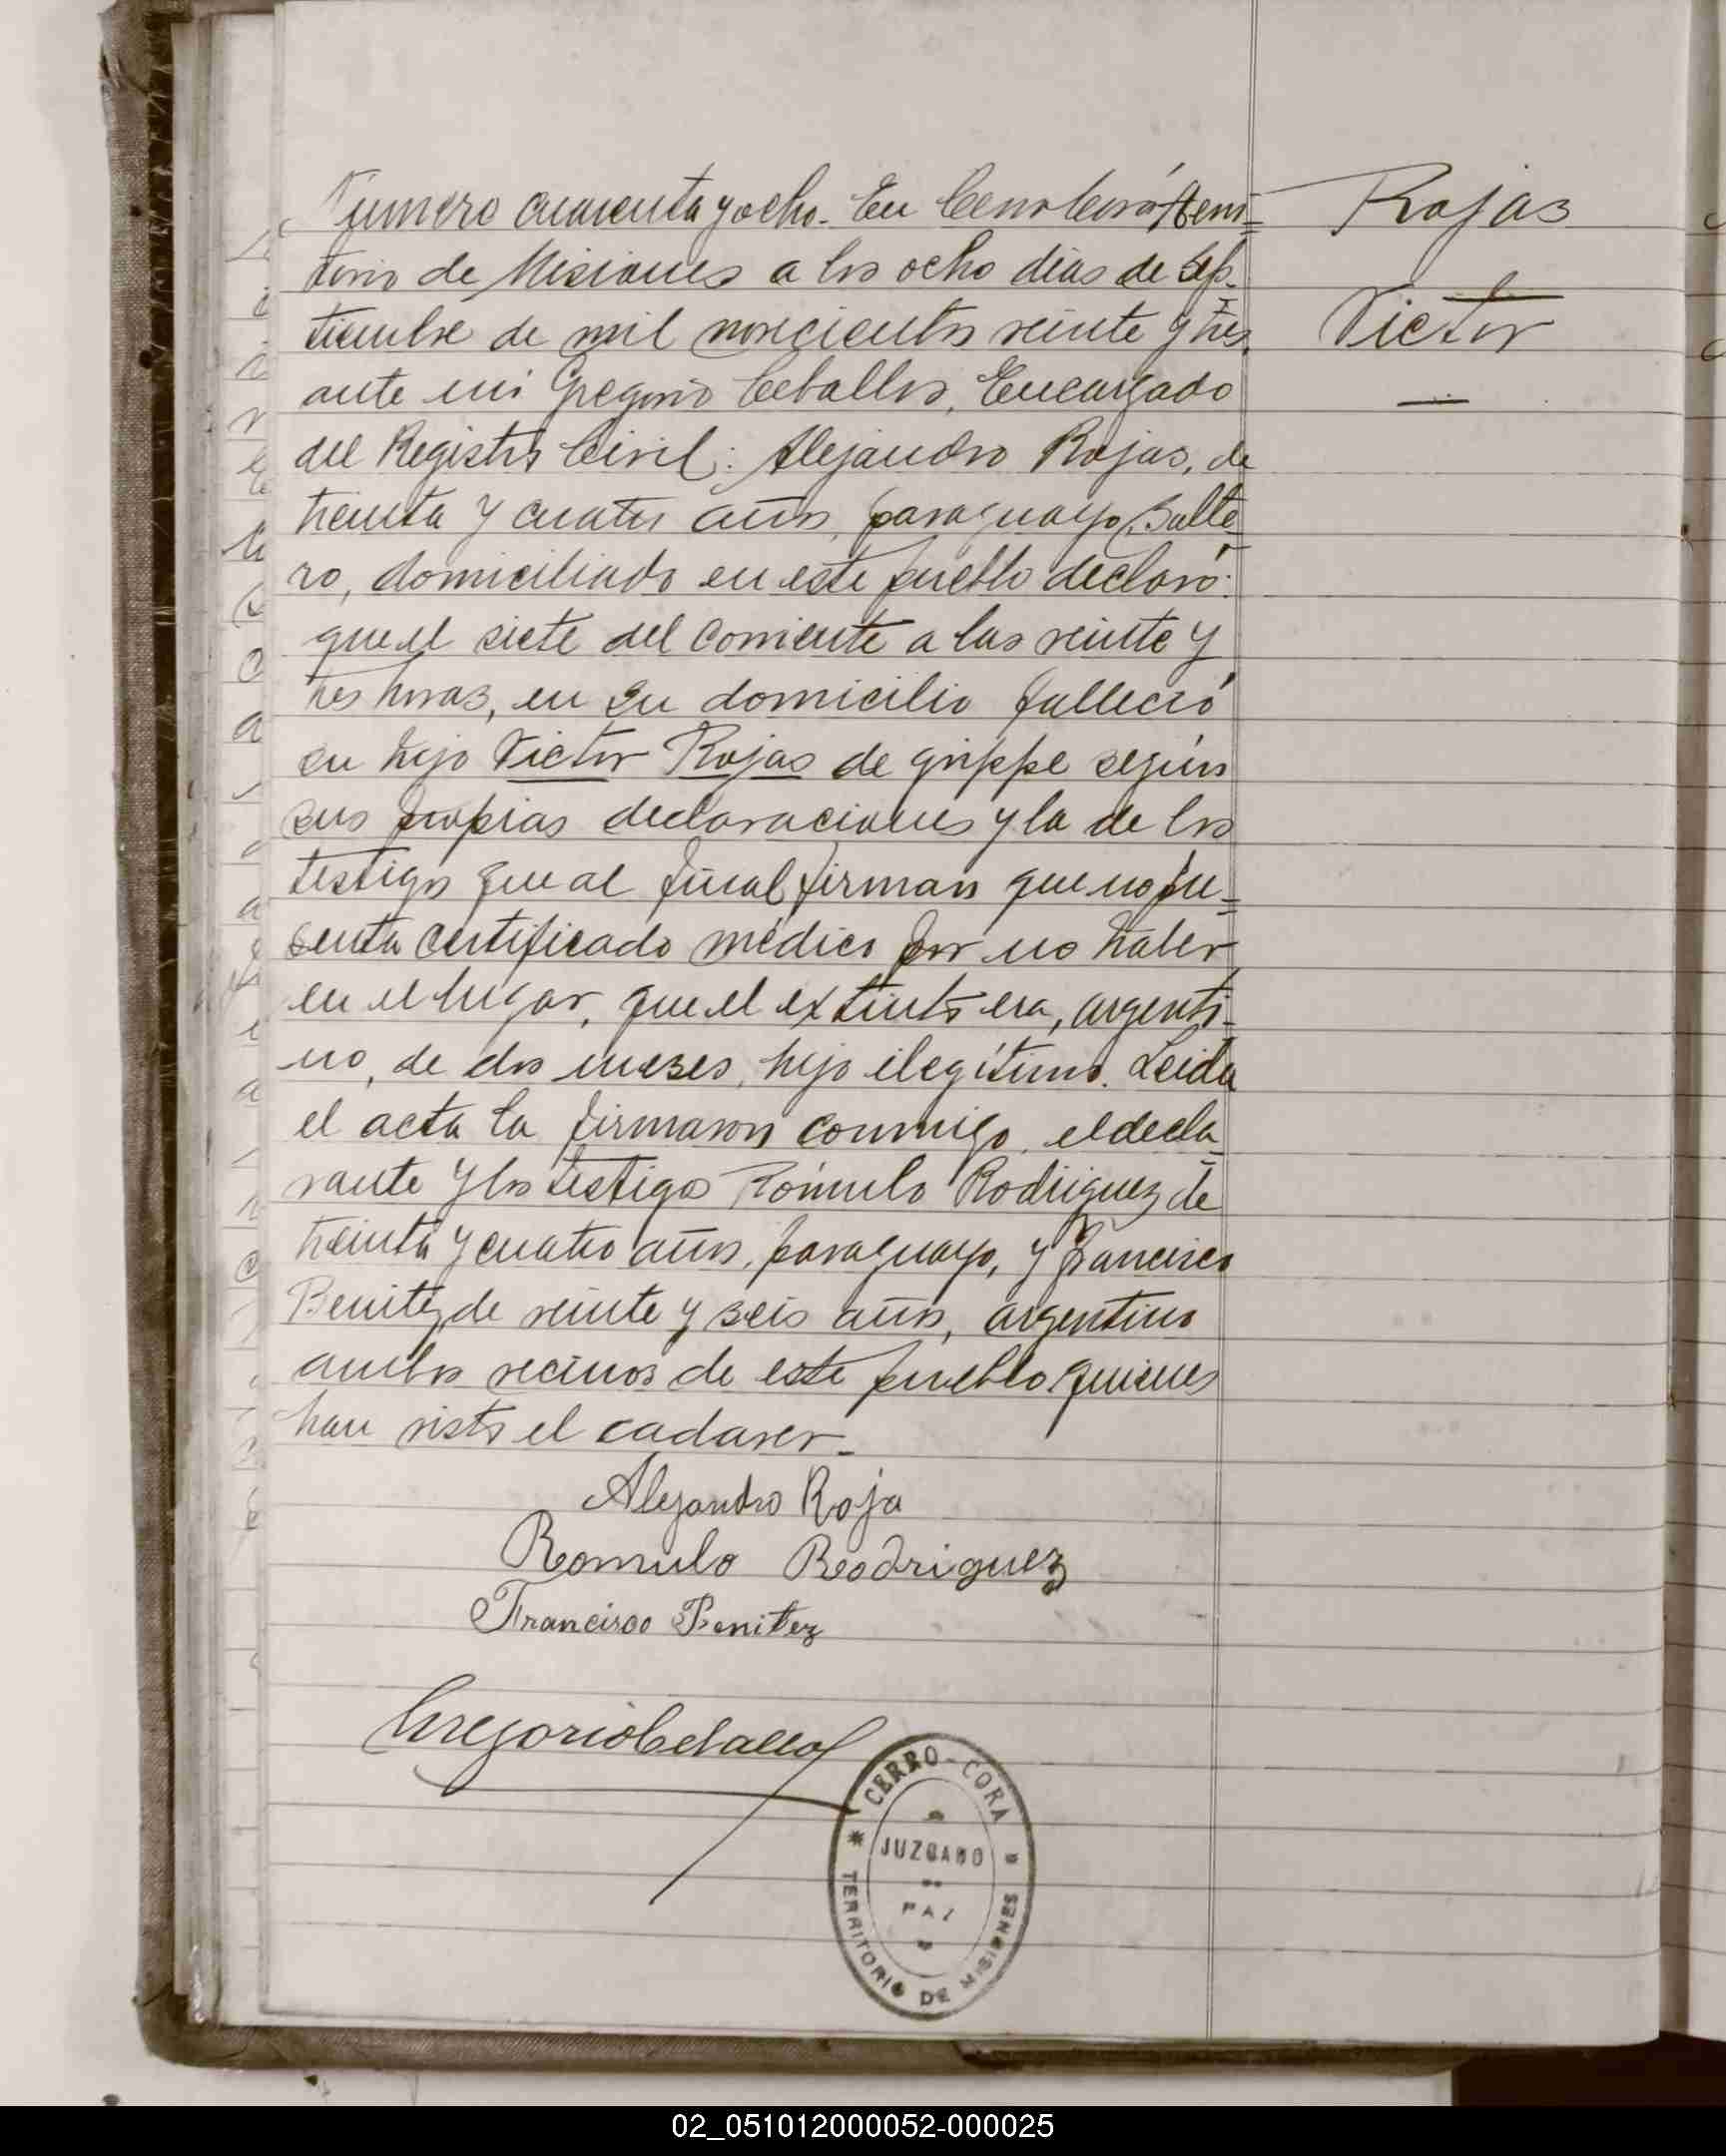 Número cuarenta y ocho. En Cerro Corá, Terri=
torio de Misiones a los ocho dias de Sep-
tiembre de mil novecientos veinte y tres
ante mi Gregorio Ceballos, Encargado
del Registro Civil: Alejandro Rojas, de
treinta y cuatro años, paraguayo, Solte-
ro, domiciliado en este pueblo declaró:
que el siete del corriente a las veinte y
tres horas, en su domicilio falleció
su hijo Victor Rojas de grippe según
sus propias declaraciones y la de los
testigos que al final firman que no pre=
senta certificado médico por no haber
en el lugar, que el extinto era, argenti-
no, de dos meses, hijo ilegítimo. Leida
el acta la firmaron conmigo, el decla-
rante y los testigos Rómulo Rodriguez de
treinta y cuatro años, paraguayo, y Francisco
Benitez de veinte y seis años, argentino
ambos vecinos de este pueblo quienes
han visto el cadaver.-
Rojas
Victor
Alejandro Roja
Romulo Rodriguez
Francisco Benitez
Gregorio Ceballos
CERRO-CORA
JUZGADO
DE
PAZ
TERRITORIO DE MISIONES
02_051012000052-000025